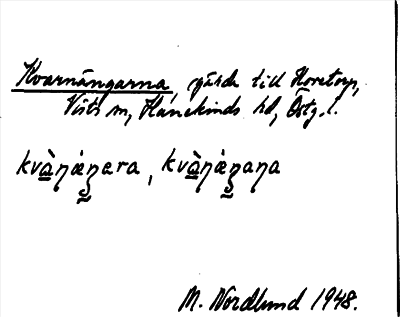 Kvarnängarna, gärde till Horetorp,
Vists sn, Hanekinds hd, Östg. l.
kvà̲ŋȧn̬era, kvà̲ŋȧn̬aŋa
M. Nordlund 1948.